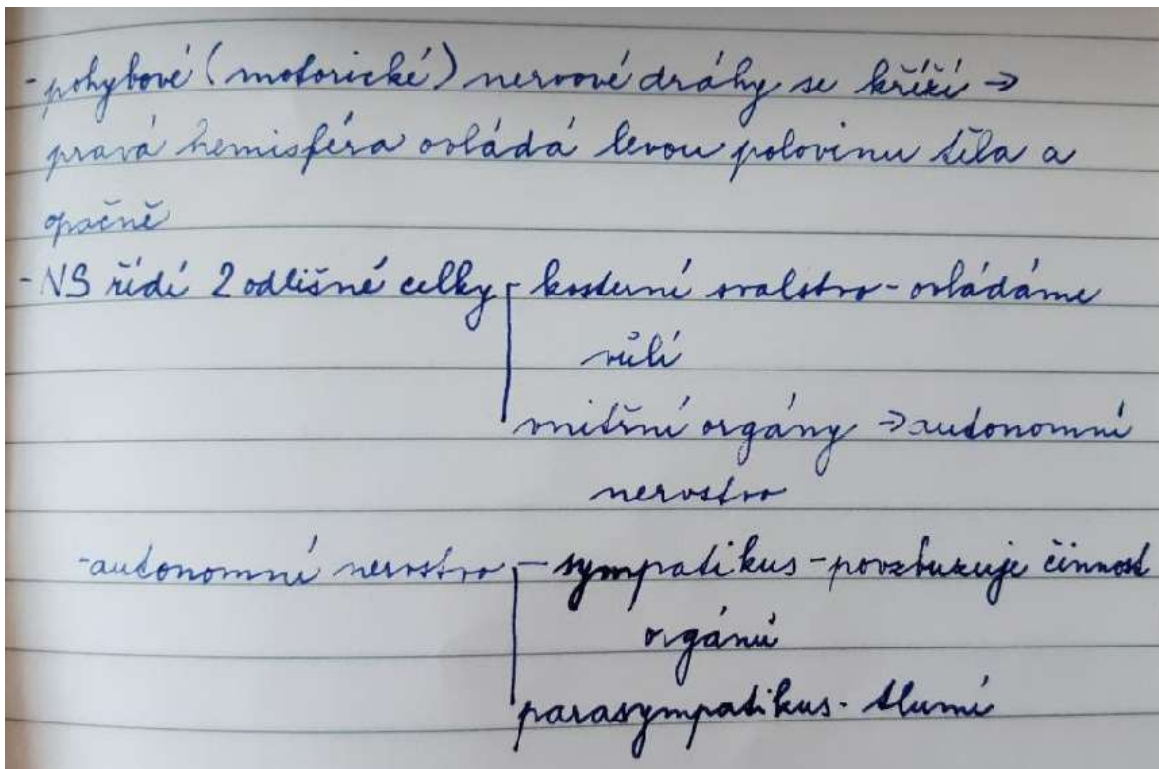 - pohybové (motorické) nervové dráhy se kříží →
pravá hemisféra ovládá levou polovinu těla a
opačně
- NS řídí 2 odlišné celky - kosterní svalstvo - ovládáme
vůlí
vnitřní orgány → autonomní
nervstvo
- autonomní nervstvo - sympatikus - povzbuzuje činnost
orgánů
parasympatikus - tlumí